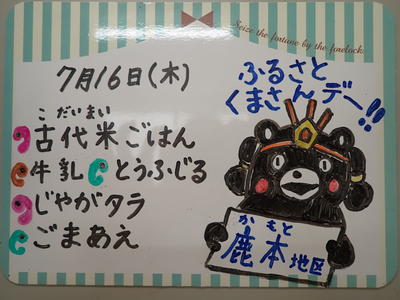 Seize the fortune by the forelock.
7月16日(木)
ふるさと
くまさんデー!!
こだいまい
古代米ごはん
牛乳 とうふじる
じゃがタラ
ごまあえ
かもと
鹿本地区